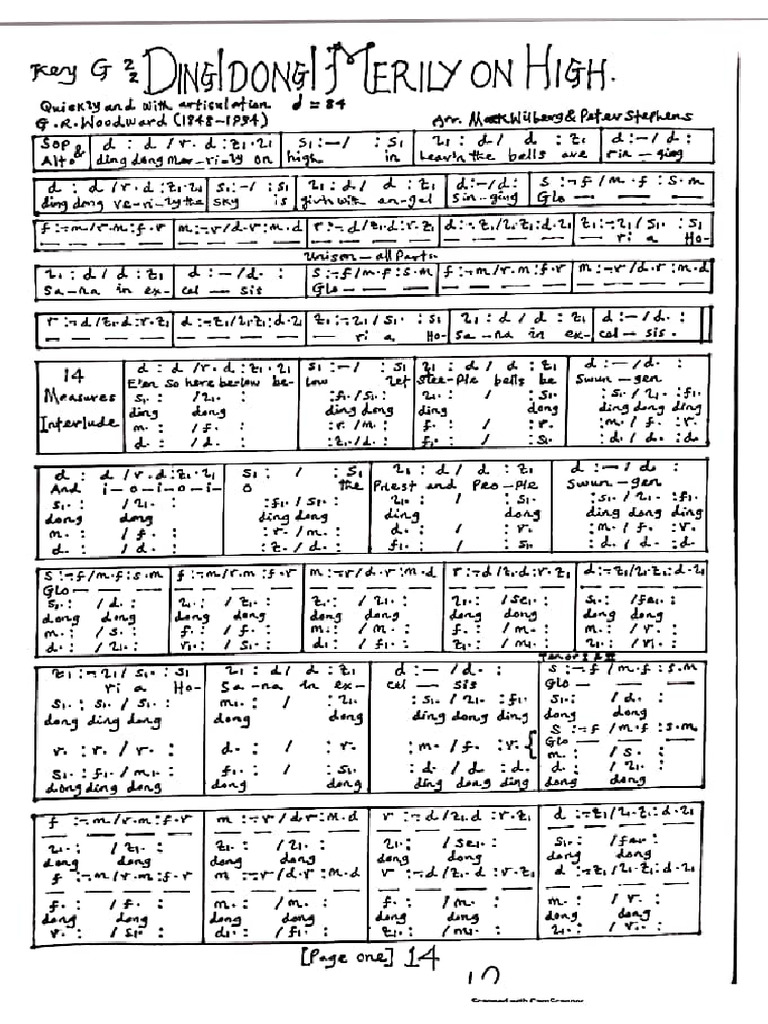 Key G 2/2 DING!DONG! MERILY ON HIGH.
Quickly and with articulation d = 84
G.R. Woodward (1848-1934) Arr. Mack Wilberg & Peter Stephens
Sop & Alto d : d / r . d : z₁ . l₁ | s₁ : — / : s₁ | l₁ : d / d : z₁ | d : — / d :
ding dong mer-ri-ly on | high in | heav'n the bells are | rin - ging
d : d / r . d : z₁ . l₁ | s₁ : — / : s₁ | l₁ : d / d : z₁ | d : — / d : | s : - f / m . f : s . m
ding dong ve-ri-ly the | sky is | giv'n with an-gel | sin-ging | Glo — — —
f : - m / r . m : f . r | m : - r / d . r : m . d | r : - d / z₁ . d : r . z₁ | d : - z₁ / l₁ . z₁ : d . l₁ | z₁ : - l₁ / s₁ . : s₁
ri a Ho-
Unison - all Parts
l₁ : d / d : z₁ | d : — / d . : | s : - f / m . f : s . m | f : - m / r . m : f . r | m : - r / d . r : m . d
Sa-na in ex- | cel — sis | Glo — — —
r : - d / z₁ . d : r . z₁ | d : - z₁ / l₁ . z₁ : d . l₁ | z₁ : - l₁ / s₁ . : s₁ | l₁ : d / d : z₁ | d : — / d . :
ri a Ho- | Sa-na in ex- | cel — sis .
14 Measures Interlude
d : d / r . d : z₁ . l₁ | s₁ : — / : s₁ | l₁ : d / d : z₁ | d : — / d . :
E'en so here below be- | low let | Stee-ple bells be | Swun-gen
s₁. : / l₁. : | : f₁. / s₁. : | l₁. : / : s₁. | : s₁. / l₁. : f₁.
ding dong | ding dong | ding dong | ding dong ding
m. : / f. : | : r. / m. : | f. : / : r. | : m. / f. : r.
d. : / d. : | : z₁. / d. : | f₁. : / : s₁. | : d. / d. : d.
d : d / r . d : z₁ . l₁ | s₁ : / : s₁ | l₁ : d / d : z₁ | d : — / d . :
And i-o-i-o-i- | o the | Priest and Peo-ple | Swun-gen
s₁. : / l₁. : | : f₁. / s₁. : | l₁. : / : s₁. | : s₁. / l₁. : f₁.
dong dong | ding dong | ding dong | ding dong ding
m. : / f. : | : r. / m. : | d. : / : r. | : m. / f. : r.
d. : / d. : | : z. / d. : | f₁. : / : s₁. | : d. / d. : d.
s : - f / m . f : s . m | f : - m / r . m : f . r | m : - r / d . r : m . d | r : - d / z₁ . d : r . z₁ | d : - z₁ / l₁ . z₁ : d . l₁
Glo — — —
s₁. : / d. : | l₁. : / z₁. : | z₁. : / l₁. : | l₁. : / se₁. : | s₁. : / fe₁. :
dong dong | dong dong | dong dong | dong dong | dong dong
m. : / s. : | f. : / f. : | m. : / m. : | f. : / m. : | m. : / r. :
d. : / l₁. : | r. : / s₁. : | d. : / f₁. : | z₁. : / m₁. : | l₁. : / r₁. :
Tenor I & II
z₁ : - l₁ / s₁. : s₁ | l₁ : d / d : z₁ | d : — / d . : | s : - f / m . f : s . m
ri a Ho- | Sa-na in ex- | cel — sis | Glo — — —
s₁. : s₁. / s₁. : | m₁. : / : l₁. | : s₁. / l₁. : f₁. | s₁. : / d. :
dong ding dong | dong dong | ding dong ding | dong dong
s : - f / m . f : s . m
r. : r. / r. : | d. : / : r. | : m. / f. : r. | Glo — — —
m. : / s. :
s₁. : f₁. / m₁. : | f₁. : / : s₁. | : d. / d. : d. | d. : / l₁. :
dong ding dong | dong dong | ding dong ding | dong dong
f : - m / r . m : f . r | m : - r / d . r : m . d | r : - d / z₁ . d : r . z₁ | d : - z₁ / l₁ . z₁ : d . l₁
l₁. : / z₁. : | z₁. : / l₁. : | l₁. : / se₁. : | s₁. : / fe₁. :
dong dong | dong dong | dong dong | dong dong
f : - m / r . m : f . r | m : - r / d . r : m . d | r : - d / z₁ . d : r . z₁ | d : - z₁ / l₁ . z₁ : d . l₁
f. : / f. : | m. : / m. : | f. : / m. : | m. : / r. :
dong dong | dong dong | dong dong | dong dong
r. : / s₁. : | d₁. : / f₁. : | z₁. : / m₁. : | l₁. : / r₁. :
[Page one] 14